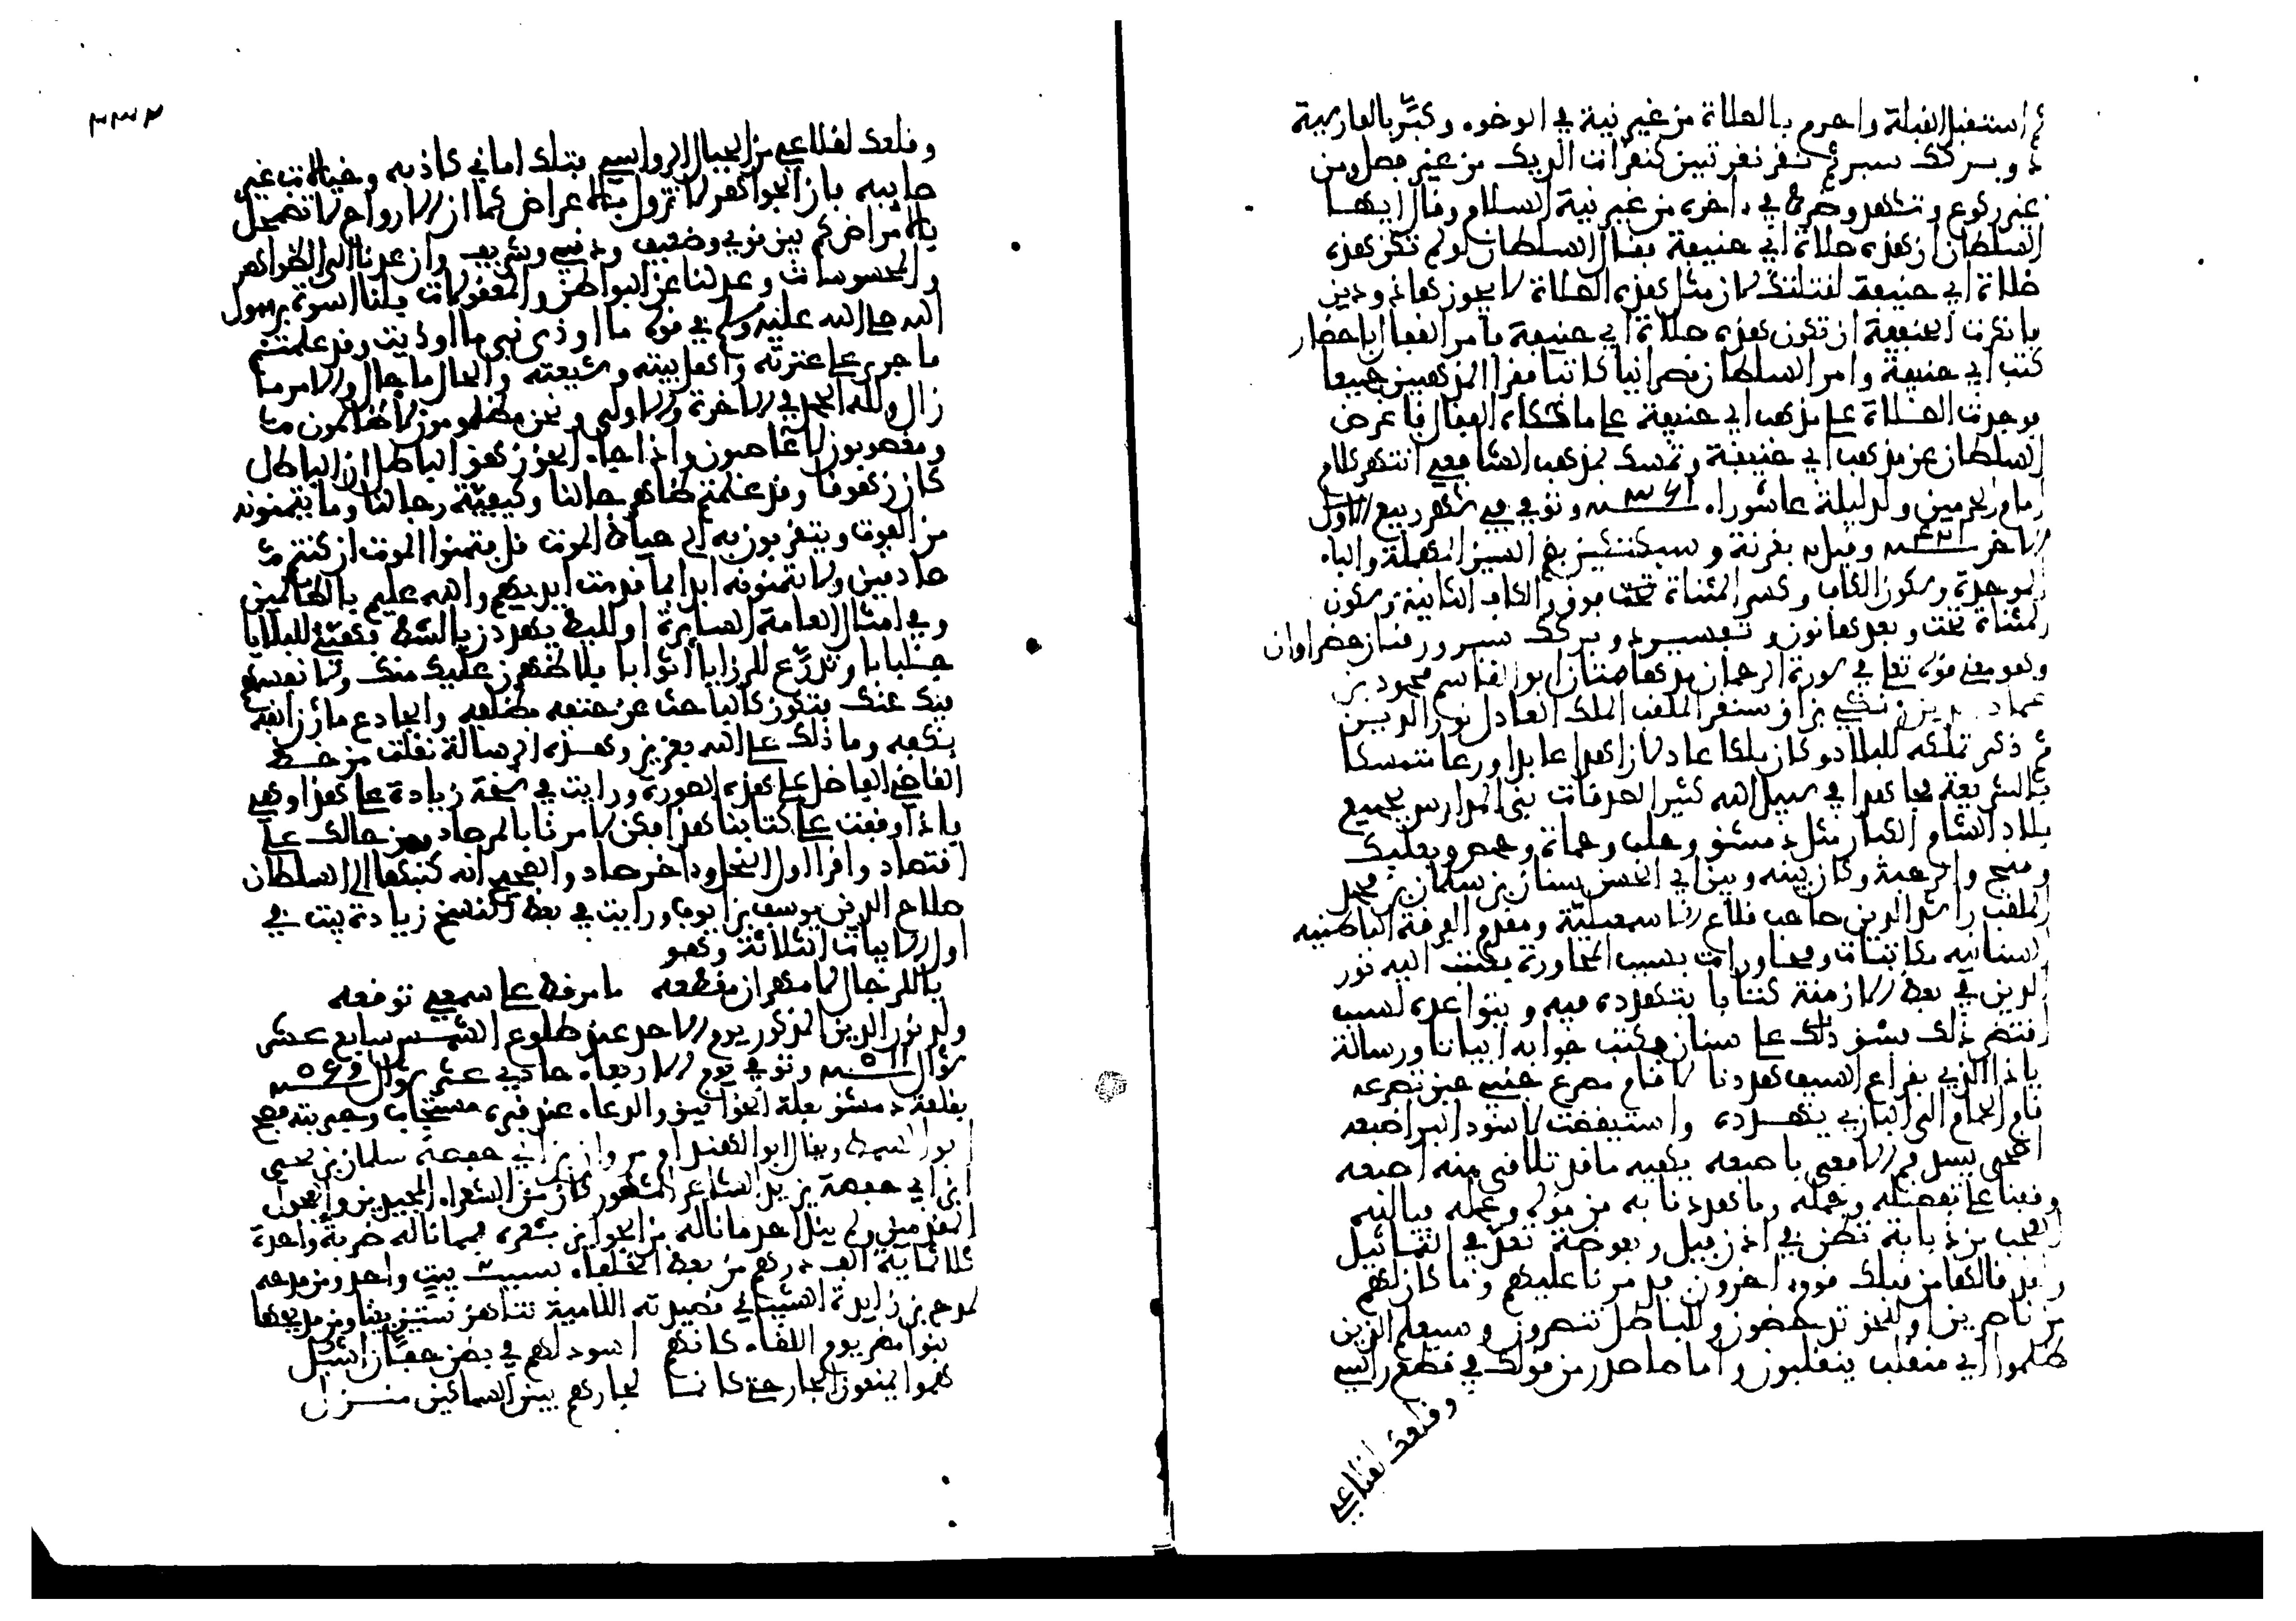 ثم استقبل القبلة واحرم بالصلاة من غير نية في الوضوء وكبّر بالفارسية
ثم وبرگك سبز ثم نقر نقرتين كنقرات الديك من غير فصل ومن
غير ركوع وتشهد وضرط في ءاخره من غير نية السلام وقال ايها
السلطان ان هذه صلاة ابي حنيفة فقال السلطان لو لم تكن هذه
صلاة ابي حنيفة لقتلتك لان مثل هذه الصلاة لا يجوزها ذو دين
فانكرت الحنفية ان تكون هذه صلاة ابي حنيفة فامر القفال باحضار
كتب ابي حنيفة وامر السلطان نصرانيا كاتبا فقرا المذهبين جميعا
فوجدت الصلاة على مذهب ابي حنيفة على ما حكاه القفال فاعرض
السلطان عن مذهب ابي حنيفة وتمسك بمذهب الشافعي انتهى كلام
امام الحرمين ولد ليلة عاشوراء سنة ٣٦١ وتوفي في شهر ربيع الاول
الاخر سنة ٤٢١ وقيل بغزنة وسبكتكين بضم السين المهملة والباء
الموحدة وسكون الكاف وكسر المثناة تحت فوق والكاف الثانية وسكون
المثناة تحت وبعدها نون وتفسير دو برگك سبز ورقتان خضراوان
وهو معنى قوله تعالى في سورة الرحمان مدهامتان ابو القاسم محمود بن
عماد الدين زنكي بن اق سنقر الملقب الملك العادل نور الدين
ثم ذكر تملكه للبلاد وكان ملكا عادلا زاهدا عابدا ورعا متمسكا
بالشريعة مجاهدا في سبيل الله كثير الصدقات بنى المدارس بجميع
بلاد الشام الكبار مثل دمشق وحلب وحماة وحمص وبعلبك
ومنبج والرحبة وكان بينه وبين ابي الحسن سنان بن سلمان بن محمد
الملقب راشد الدين صاحب قلاع الاسمعيلية ومقدم الفرقة الباطنيه
السنانيه مكاتبات ومحاورات بسبب المجاورة فكتب اليه نور
الدين في بعض الازمنة كتابا يتهدده فيه ويتواعده لسبب
اقتضى ذلك فشق ذلك على سنان وكتب جوابه ابياتا ورسالة
ياذا الذي بقراع السيف هددنا لا قام مصرع جنبي حين تصرعه
قام الحمام الى البازي يهدده واستيقظت لاسود البر اضبعه
اضحى يسد فم الافعى باصبعه يكفيه ما قد تلاقي منه اصبعه
وقفنا على تفصيله وجمله وما هددنا به من قوله وعمله فيالله
العجب من ذبابة تطن في اذن فيل وبعوضة تعدّ في التماثيل
ولقد قالها من قبلك قوم ءاخرون فدمرنا عليهم وما كان لهم
من ناصرين او للحق تدحضون وللباطل تنصرون وسيعلم الذين
ظلموا اي منقلب ينقلبون واما ما صدر من قولك في قطع راسي
وقلعك لقلاعي
٣٣٢
وقلعك لقلاعي من الجبال الرواسي فتلك اماني كاذبه وخيالات غير
صايبه فان الجواهر لا تزول بالاعراض كما ان الارواح لا تضمحل
بالامراض كم بين قوي وضعيف ودني وشريف وان عدنا الى الظواهر
والمحسوسات وعدلنا عن البواطن والمعقولات فلنا اسوة برسول
الله صلى الله عليه وسلم في قوله ما اوذي نبي ما اوذيت وقد علمتم
ما جرى على عترته واهل بيته وشيعته والحال ما حال والامر ما
زال ولله الحمد في الاخرة والاولى ونحن مظلومون لا ظالمون
ومغصوبون لا غاصبون واذا جاء الحق زهق الباطل ان الباطل
كان زهوقا وقد علمتم ظاهر حالنا وكيفية رجالنا وما يتمنونه
من الفوت ويتقربون به الى حياض الموت قل فتمنوا الموت ان كنتم
صادقين ولا يتمنونه ابدا بما قدمت ايديهم والله عليم بالظالمين
وفي امثال العامة السايرة او للبط يهددون بالشط فهيئ للبلايا
جلبابا وتدرّع للرزايا اثوابا فلاظهرن عليك منك ولافنينهم
فيك عنك فتكون كالباحث عن حتفه بظلفه والجادع مارن انفه
بكفه وما ذلك على الله بعزيز وهذه الرسالة نقلت من خط
القاضي الفاضل على هذه الصورة ورايت في نسخة زيادة على هذا وهي
فاذا وقفت على كتابنا هذا فكن لامرنا بالمرصاد ومن حالك على
اقتصاد واقرا اول النحل وءاخر صاد والصحيح انه كتبها الى السلطان
صلاح الدين يوسف بن ايوب ورايت في بعض النسخ زيادة بيت في
اول الابيات الثلاثة وهو
يا للرجال لامر هال مفظعه ما مر قط على سمعي توقعه
ولد نور الدين المذكور يوم الاحد عند طلوع الشمس سابع عشر
شوال سنة ٥١١ وتوفي يوم الاربعاء حادي عشر شوال سنة ٥٦٩
بقلعة دمشق بعلة الخوانيق والدعاء عند قبره مستجاب وجرب فصح
ابو السمط ويقال ابو الهندام مروان بن ابي حفصة سلمان بن يحيى
ابن ابي حفصة يزيد الشاعر المشهور كان من الشعراء المجيدين والفحول
المقدمين ولم ينل احد ما ناله من الجوايز بشعره فمما ناله ضربة واحدة
ثلاثماية الف درهم من بعض الخلفاء بسبب بيت واحد ومن مدحه
لمعن بن زايدة الشيباني قصيدته اللامية تناهز ستين بيتا ومن مديحها
بنوا مطر يوم اللقاء كانهم اسود لهم في بطن خفان اشبل
هموا يمنعون الجار حتى كانما لجارهم بين السماكين منزل